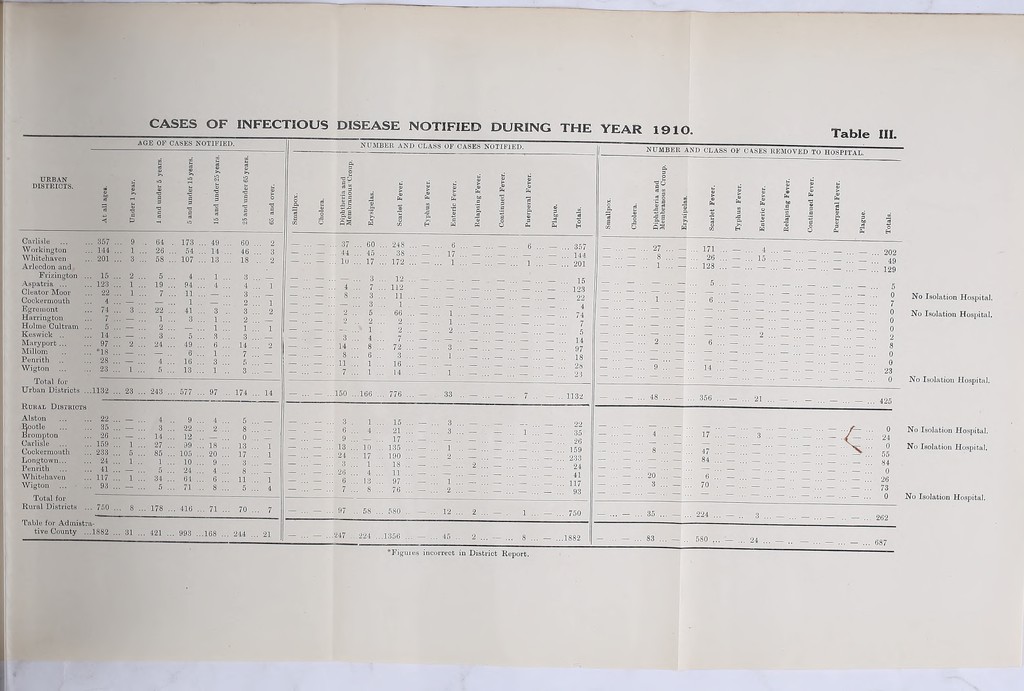 CASES OF INFECTIOUS DISEASE NOTIFIED DURING THE YEAR 1910. Table III.
AGE OF CASES NOTIFIED. NUMBER AND CLASS OF CASES NOTIFIED. NUMBER AND CLASS OF CASES REMOVED TO HOSPITAL.
URBAN DISTRICTS. At all ages. Under 1 year. 1 and under 5 years. 5 and under 15 years. 15 and under 25 years. 25 and under 65 years. 65 and over. Smallpox. Cholera. Diphtheria and Membranous Croup. Erysipelas. Scarlet Fever. Typhus Fever. Enteric Fever. Relapsing Fever. Continued Fever. Puerperal Fever. Plague. Totals. Smallpox. Cholera. Diphtheria and Membranous Croup. Erysipelas. Scarlet Fever. Typhus Fever. Enteric Fever. Relapsing Fever. Continued Fever. Puerperal Fever. Plague. Totals.
Carlisle ... ... 357 ... 9 ... 64 ... 173 ... 49 ... 60 ... 2 — — 37 60 248 — 6 — — 6 — ... 357 — — 27 — 171 — 4 — — — — ... 202
Workington ... 144 ... 1 ... 26 ... 54 ... 14 ... 46 ... 3 — — 44 45 38 — 17 — — — — ... 144 — — 8 — 26 — 15 — — — — ... 49
Whitehaven ... 201 ... 3 ... 58 ... 107 ... 13 ... 18 ... 2 — — 10 17 172 — 1 — — 1 — ... 201 — — 1 — 128 — — — — — — ... 129
Arlecdon and
Frizington ... 15 ... 2 ... 5 ... 4 ... 1 ... 3 ... — 3 12 15 5 5
Aspatria ... ... 123 ... 1 ... 19 ... 94 ... 4 ... 4 ... 1 4 7 112 123 0 No Isolation Hospital.
Cleator Moor ... 22 ... 1 ... 7 ... 11 ... — ... 3 ... — 8 3 11 22 1 6 7
Cockermouth ... 4 ... — ... — ... 1 ... — ... 2 ... 1 3 1 4 0 No Isolation Hospital.
Egremont ... 74 ... 3 ... 22 ... 41 ... 3 ... 3 ... 2 2 5 66 1 74 0
Harrington ... 7 ... — ... 1 ... 3 ... 1 ... 2 ... — 2 2 2 1 7 0
Holme Cultram ... 5 ... — ... 2 ... — ... 1 ... 1 ... 1 1 2 2 5 0
Keswick ... ... 14 ... — ... 3 ... 5 ... 3 ... 3 ... — 3 4 7 14 2 2
Maryport ... ... 97 ... 2 ... 24 ... 49 ... 6 ... 14 ... 2 14 8 72 3 97 2 6 8
Millom ... *18 ... — ... — ... 6 ... 1 ... 7 ... — 8 6 3 1 18 0
Penrith ... 28 ... — ... 4 ... 16 ... 3 ... 5 ... — 11 1 16 28 9 14 23
Wigton ... ... 23 ... 1 ... 5 ... 13 ... 1 ... 3 ... — 7 1 14 1 23 0 No Isolation Hospital.
Total for
Urban Districts ...1132 ... 23 ... 243 ... 577 ... 97 ... 174 ... 14 — — 150 ...166 ... 776 — 33 — — 7 — ...1132 — — 48 — 356 — 21 — — — — ... 425
RURAL DISTRICTS
Alston ... ... 22 ... — ... 4 ... 9 ... 4 ... 5 ... — 3 1 15 3 22 0 No Isolation Hospital.
Bootle ... ... 35 ... — ... 3 ... 22 ... 2 ... 8 ... — 6 4 21 3 1 35 4 17 3 24
Brampton ... 26 ... — ... 14 ... 12 ... — ... 0 ... — 9 17 26 0 No Isolation Hospital.
Carlisle ... 159 ... 1 ... 27 ... 99 ... 18 ... 13 ... 1 13 10 135 1 159 8 47 55
Cockermouth ... 233 ... 5 ... 85 ... 105 ... 20 ... 17 ... 1 24 17 190 2 233 84 84
Longtown... ... 24 ... 1 ... 1 ... 10 ... 9 ... 3 ... — 3 1 18 2 24 0
Penrith ... 41 ... — ... 5 ... 24 ... 4 ... 8 ... — 26 4 11 41 20 6 26
Whitehaven ... 117 ... 1 ... 34 ... 64 ... 6 ... 11 ... 1 6 13 97 1 117 3 70 73
Wigton ... ... 93 ... — ... 5 ... 71 ... 8 ... 5 ... 4 7 8 76 2 93 0 No Isolation Hospital.
Total for
Rural Districts ... 750 ... 8 ... 178 ... 416 ... 71 ... 70 ... 7 — — 97 ... 58 ... 580 — 12 ... 2 — 1 — 750 — — 35 — 224 — 3 — — — — ... 262
Table for Admistra-
tive County ...1882 ... 31 ... 421 ... 993 ...168 ... 244 ... 21 — — 247 ...224 ...1356 — 45 2 — 8 — ...1882 — — 83 — 580 — 24 — — — — ... 687
*Figures incorrect in District Report.